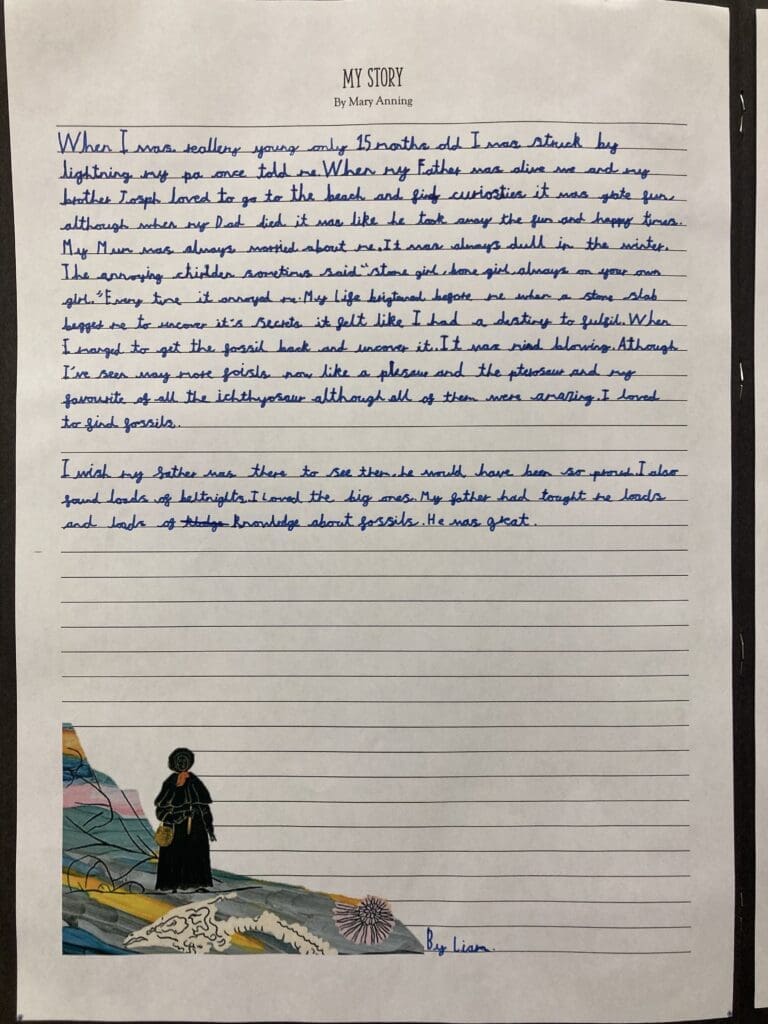 MY STORY
By Mary Anning
When I was reallery young only 15 months old I was struck by
lightning my pa once told me. When my Father was alive me and my
brother Josph loved to go to the beach and find curiosties it was grate fun,
although when my Dad died it was like he took away the fun and happy times.
My Mum was always worried about me. It was always dull in the winter.
The annoying chirlden sometimes said "stone girl, bone girl always on your own
girl." Every time it annoyed me. My Life brigtened before me when a stone slab
begged me to uncover it's secrets it felt like I had a destiny to fulfil. When
I manged to get the fossil back and uncover it. It was mind blowing. Athough
I've seen may more foisls now like a plesaur and the pterosaur and my
favourite of all the ichthyosaur although all of them were amazing. I loved
to find fossils.
I wish my father was there to see them, he would have been so proud. I also
found loads of beltnights. I loved the big ones. My father had tought me loads
and loads of knowledge about fossils. He was great.
By Liam.